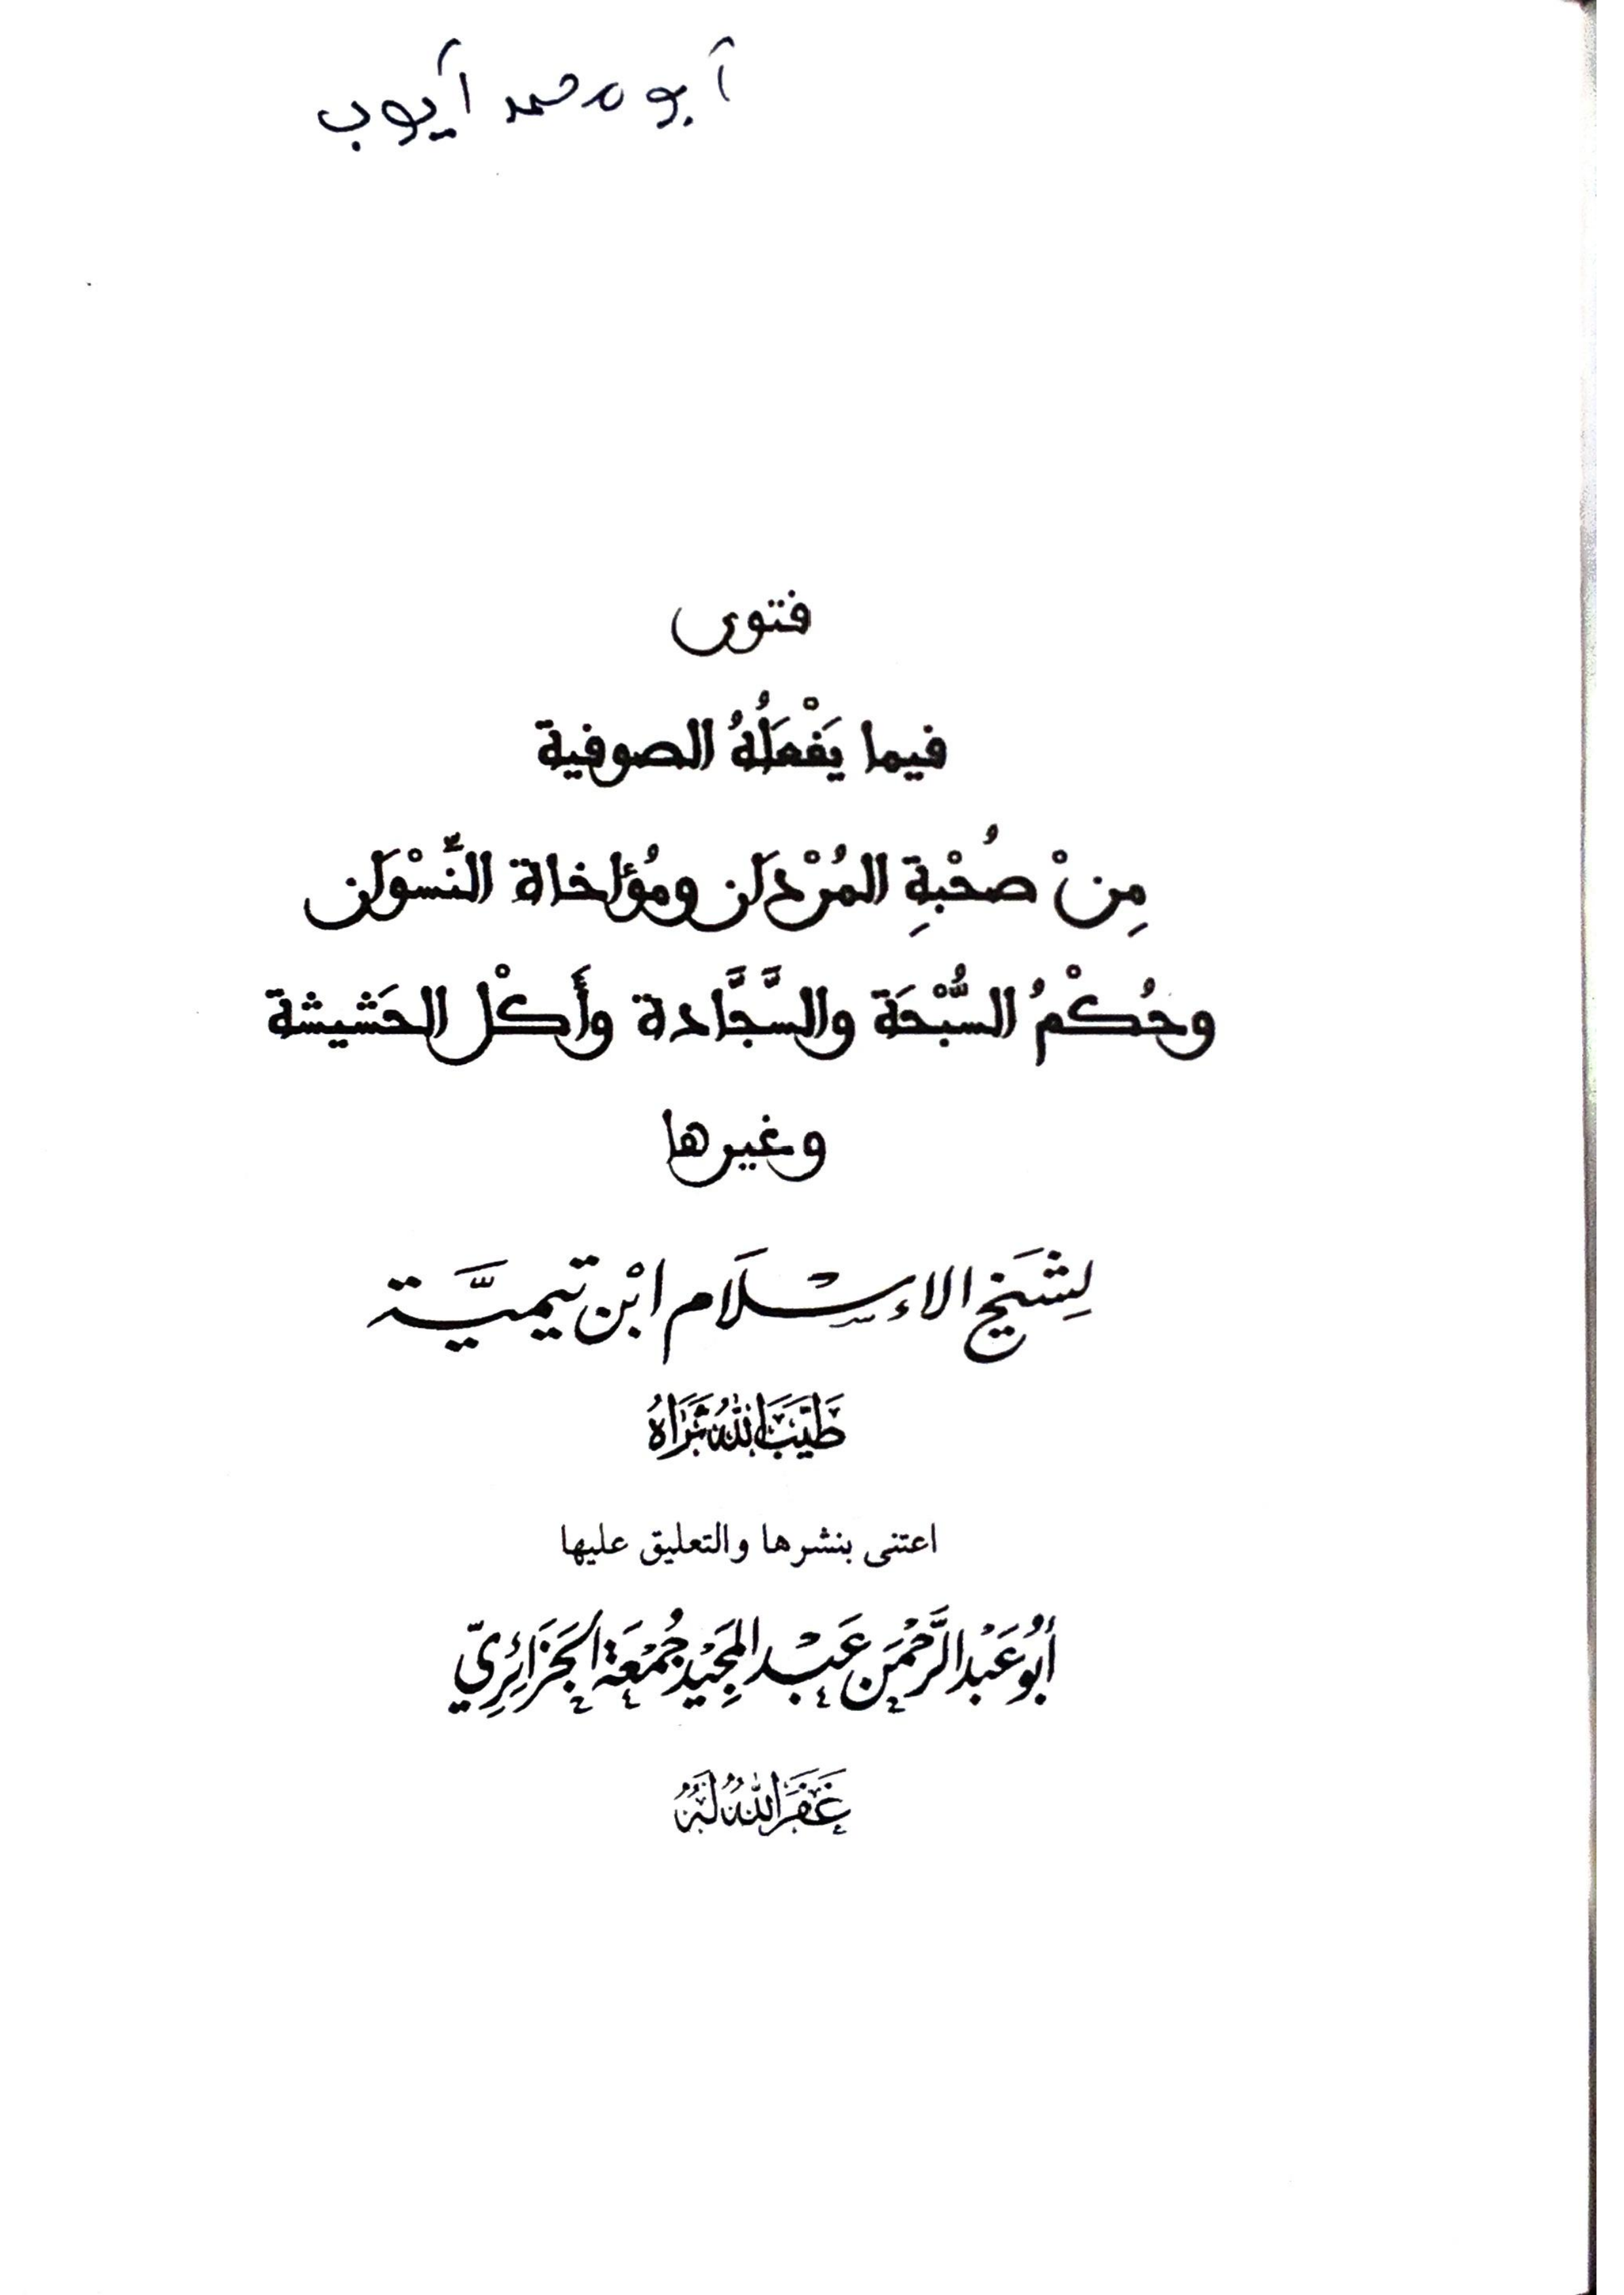 أبو محمد أيوب
فتوى
فيما يَفْعَلُهُ الصوفية
مِنْ صُحْبةِ المُرْدَان ومُؤاخاة النِّسْوَان
وحُكْمُ السُّبْحَة والسَّجَّادة وأَكْل الحَشيشة
وغيرها
لِشَيخ الإِسْلَام ابْن تيميَّة
طَيَّبَ اللهُ ثَرَاهُ
اعتنى بنشرها والتعليق عليها
أَبُو عَبْد الرَّحْمَن عَبْد المَجِيْد جُمْعَة الجَزَائِرِيّ
غَفَرَ اللهُ لَهُ